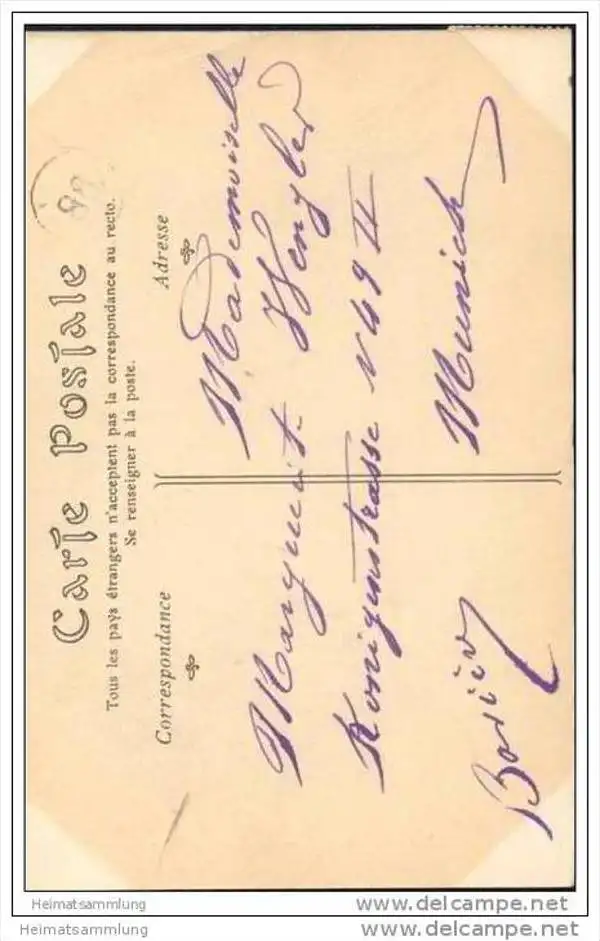 Carte Postale
Tous les pays étrangers n'acceptent pas la correspondance au recto.
Se renseigner à la poste.
Correspondance
Adresse
Mademoiselle
Marguerite Wengler
Konigenstrasse N 49 II
Munich
Heimatsammlung
Heimatsammlung
www.delcampe.net
www.delcampe.net